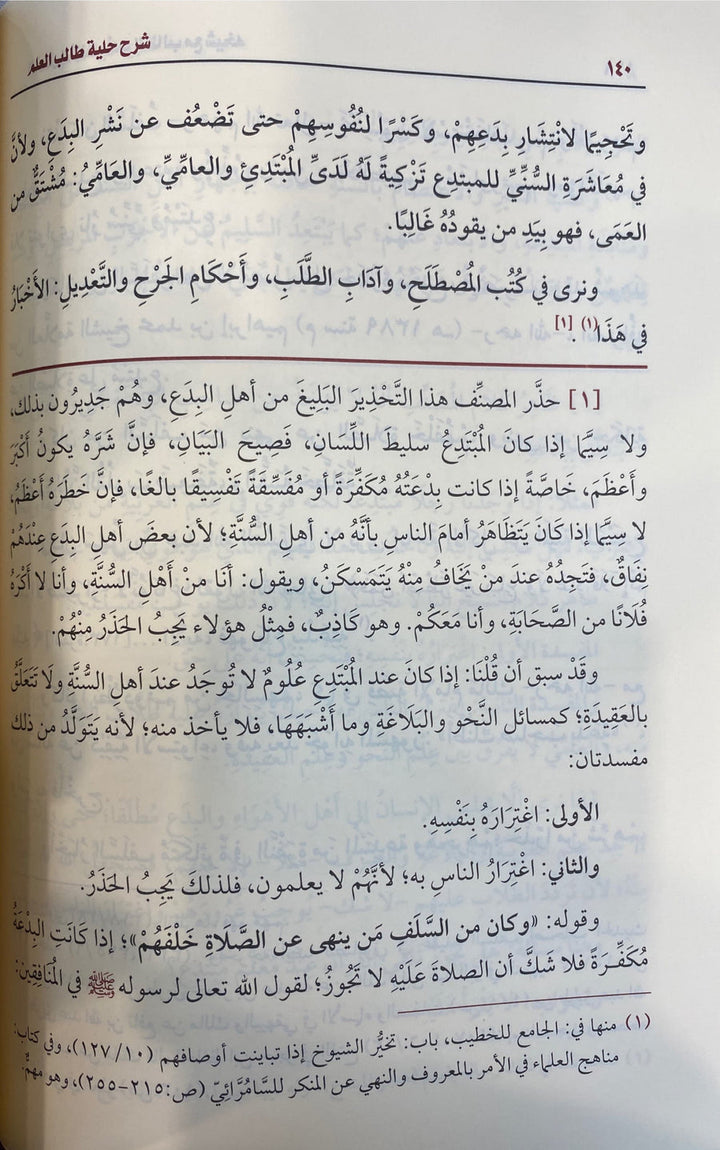 شرح حلية طالب العلم
١٤٠
وتَحْجِيمًا لانْتِشَارِ بِدَعِهِمْ، وكَسْرًا لنُفُوسِهِمْ حتى تَضْعُف عن نَشْرِ البِدَعِ، ولأنَّ
في مُعَاشَرَةِ السُّنِّيِّ للمبتدِعِ تَزْكِيةً لَهُ لَدَىِّ المُبْتَدِئِ والعامِّيِّ، والعَامِّيُ: مُشْتَقٌّ من
العَمَى، فهو بِيَدِ من يقودُهُ غَالِبًا.
ونرى في كُتُب المُصْطَلَحِ، وآدَابِ الطَّلَبِ، وأَحْكامِ الجَرْحِ والتَّعْدِيلِ: الأَخْبَارُ
في هَذَا(١).[١]
[١] حذَّر المصنِّف هذا التَّحْذِيرَ البَلِيغَ من أهلِ البِدَعِ، وهُمْ جَدِيرُون بذلك،
ولا سِيَّما إذا كانَ المُبْتَدِعُ سليطَ اللِّسَانِ، فَصِيحَ البَيَانِ، فإنَّ شَرَّهُ يكونُ أَكْبَرَ
وأَعْظَمَ، خَاصَّةً إذا كانت بِدْعَتُهُ مُكَفِّرَةً أو مُفَسِّقَةً تَفْسِيقًا بالغًا، فإنَّ خَطَرَهُ أَعْظَمُ،
لا سِيَّما إذا كانَ يَتَظَاهَرُ أمامَ الناسِ بأنَّهُ من أهلِ السُّنَّةِ؛ لأن بعضَ أهلِ البِدَعِ عِنْدَهُمْ
نِفَاقٌ، فتَجِدُهُ عندَ مَنْ يَخَافُ مِنْهُ يَتَمَسْكَنُ، ويقول: أنَا منْ أَهْلِ السُّنَّةِ، وأنا لا أَكْرَهُ
فُلَانًا من الصَّحَابَةِ، وأنا مَعَكُمْ. وهو كَاذِبٌ، فمِثْلُ هؤلاء يَجِبُ الحَذَرُ مِنْهُمْ.
وقَدْ سبق أن قُلْنَا: إذا كانَ عند المُبْتَدِعِ عُلُومٌ لا تُوجَدُ عندَ أهلِ السُّنَّةِ ولَا تَتَعَلَّقُ
بالعَقِيدَةِ؛ كمسائل النَّحْوِ والبَلَاغَةِ وما أَشْبَهَهَا، فلا يأخذ منه؛ لأنه يَتَوَلَّدُ من ذلك
مفسدتان:
الأولى: اغْتِرَارَهُ بِنَفْسِهِ.
والثاني: اغْتِرَارُ الناسِ به؛ لأنَّهُمْ لا يعلمون، فلذلكَ يَجِبُ الحَذَرُ.
وقوله: «وكان من السَّلَفِ مَن ينهى عن الصَّلَاةِ خَلْفَهُمْ»؛ إذا كَانَتِ البِدْعَةُ
مُكَفِّرَةً فلا شَكَّ أن الصلاةَ عَلَيْهِ لا تَجُوزُ؛ لقول الله تعالى لرسوله ﷺ في المُنَافِقِين:
(١) منها في: الجامع للخطيب، باب: تخيُّر الشيوخ إذا تباينت أوصافهم (١٠/ ١٢٧)، وفي كتاب:
مناهج العلماء في الأمر بالمعروف والنهي عن المنكر للسَّامُرَّائيّ (ص:٢١٥-٢٥٥)، وهو مهمٌّ.